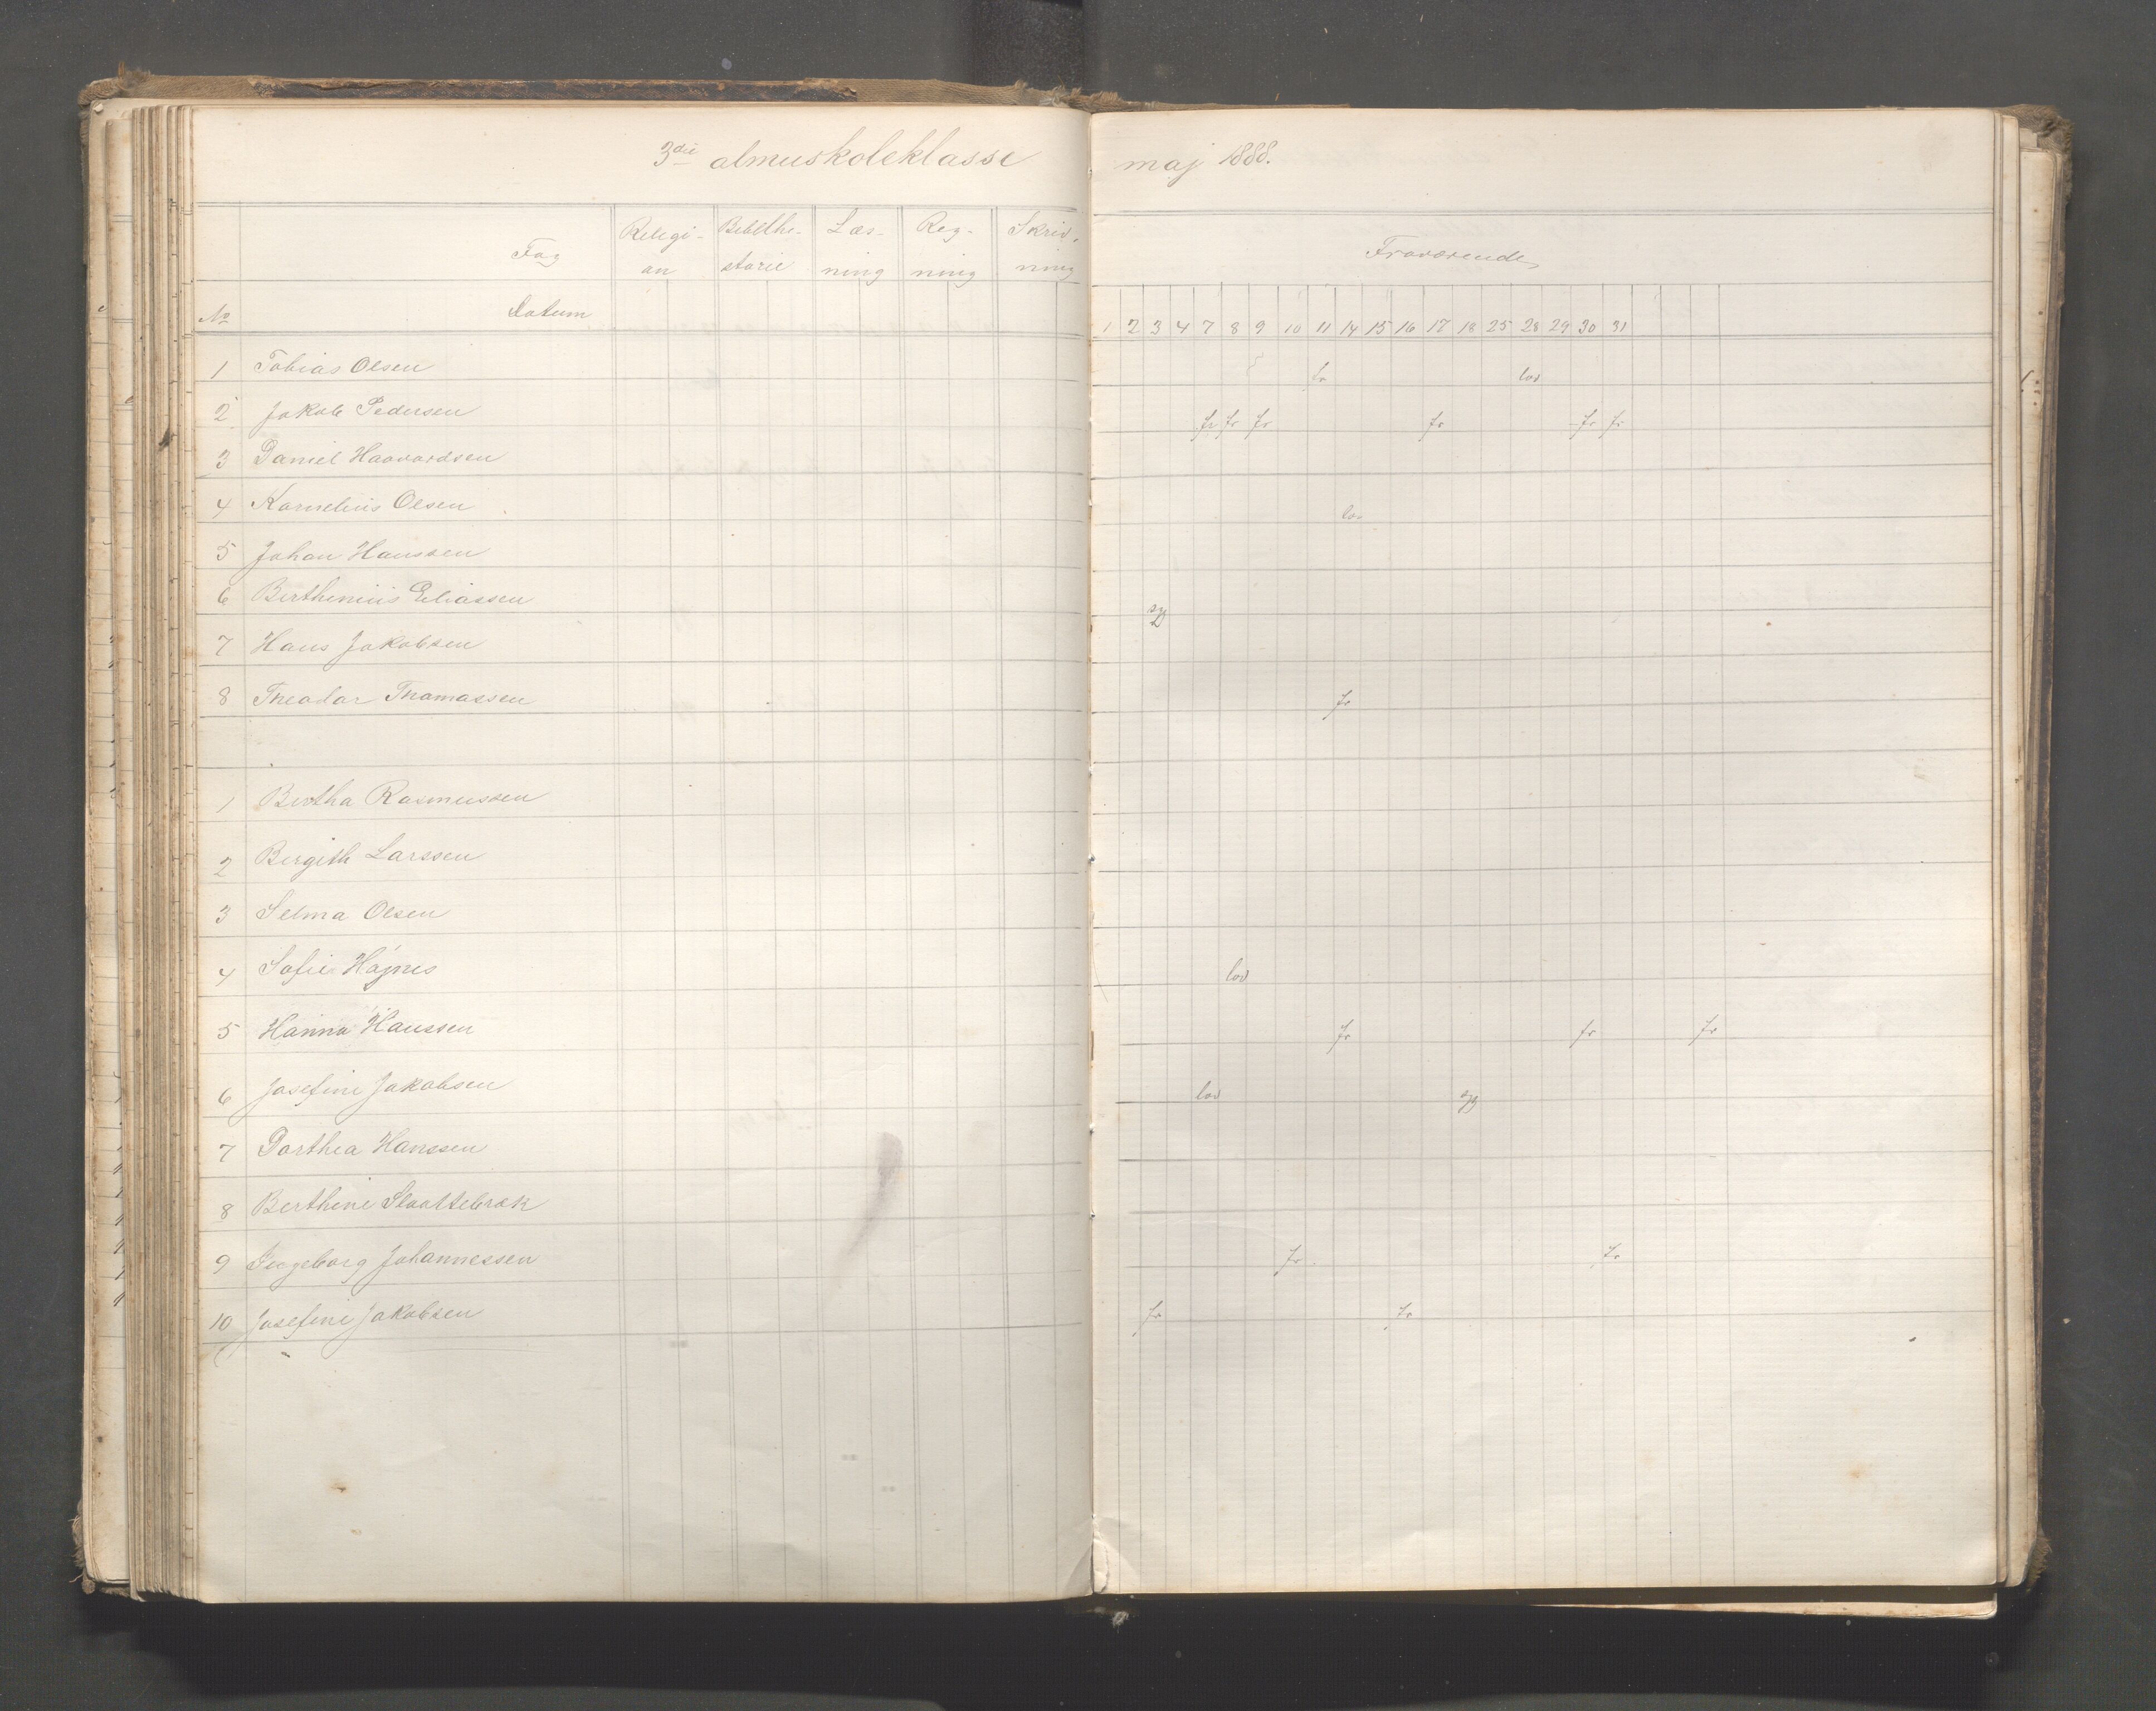 3die almuskoleklasse maj 1888.
Fag Religi- Bibelhi- Læs- Reg- Skriv-
on storie ning ning ning
Fraværende
No Datum
1 2 3 4 7 8 9 10 11 14 15 16 17 18 25 28 29 30 31
1 Tobias Olsen fr lov
2 Jakob Pedersen fr fr fr fr fr fr
3 Daniel Haavardsen
4 Kornelius Olsen lov
5 Johan Hanssen
6 Berthinius Eliassen syg
7 Hans Jakobsen
8 Theodor Thomassen fr
1 Bertha Rasmussen
2 Bergith Larssen
3 Selma Olsen
4 Sofie Højnes lov
5 Hanna Hanssen fr fr fr
6 Josefine Jakobsen lov syg
7 Dorthea Hanssen
8 Berthine Slaattebrak
9 Ingeborg Johannessen fr fr
10 Josefine Jakobsen fr fr